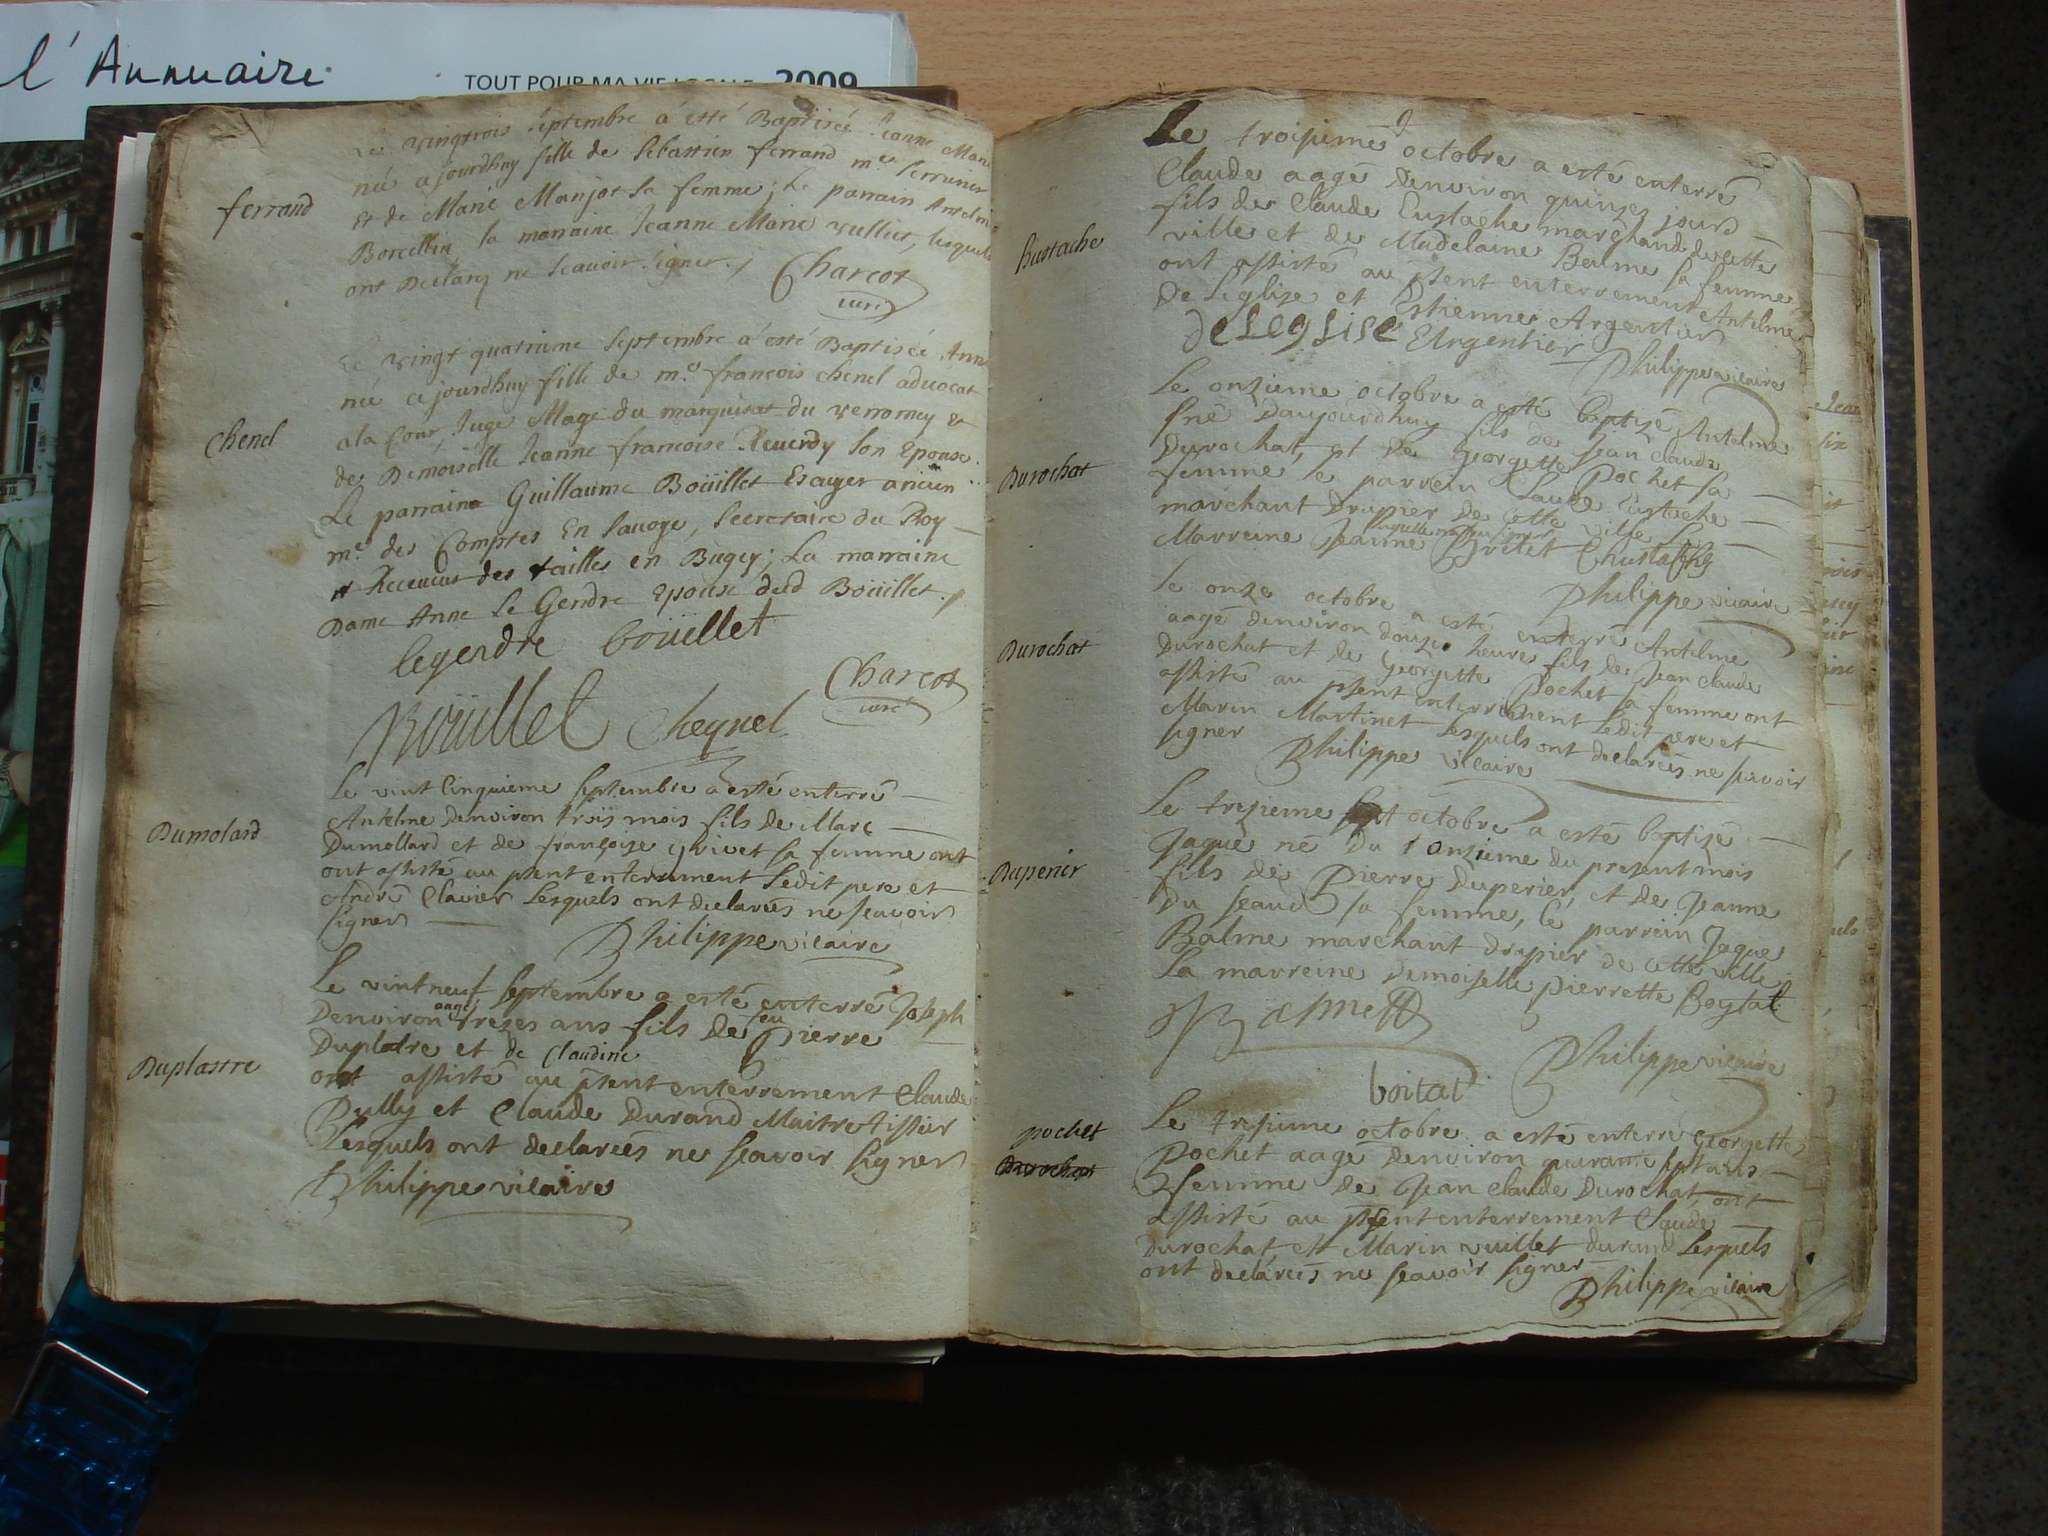 l'Annuaire
TOUT POUR MA VIE LOCALE 2009
Le vingtrois septembre á esté Baptisée Jeanne Marie
née cejourdhuy fille de Sebastien ferrand me serrurier
ferrand
et de Marie Manjot sa femme; Le parrain Antelme
Borcellin, la marraine Jeanne Marie vullier, lesquels
ont Declaré ne scavoir signer./.
Charcot
curé
Le vingt quatrieme Septembre á esté Baptisée Anne
née cejourdhuy fille de me françois chenel advocat
Chenel
a la Cour, Juge Mage du marquisat du verromey &
de Demoiselle Jeanne francoise Reverdy son Epouse.
Le parraine Guillaume Boüillet Escuyer ancien
me des Comptes En Savoye, Secretaire du Roy
& Receveur des tailles en Bugey; La marraine
Dame Anne Le Gendre epouse dud Boüillet./.
legendre boüillet
Charcot
curé
Boüillet Cheynel
Le vint Cinquieme septembre a esté enterré
Antelme Denviron trois mois fils de Marc
Dumolard
Dumollard et de françoise grivet sa femme ont
ont assisté au pñent enterrement Ledit pere et
André Clavier Lesquels ont declarées ne scavoir
signer
Philippe vicaire
Le vintneuf septembre a esté enterré Joseph
aagé
feu
Denviron trezes ans fils de Pierre
Duplastre
Duplatre et de Claudine
ont assisté au pñent enterrement Claude
Dully et Claude Durand Maitre tissier
Lesquels ont declareés ne scavoir signer
Philippe vicaire
Le troisieme octobre a esté enterré
Claude aagé Denviron quinzes jours
fils de Claude Eustache marchand de cette
Eustache
ville et de Madelaine Balme sa femme
ont assisté au pñent enterrement Antelme
De Leglize et Estienne Argentier
deleglise EArgentier
Philippe vicaire
Le onzieme octobre a esté baptizé Antelme
né Daujourdhuy fils de Jean Claude
Durochat
Durochat, et de Georgette Pochet sa
femme le parrein Claude Eustache
marchant Drapier de cette ville La
Marreine Jeanne Brttet CEustache
Philippe vicaire
le onze octobre a esté enterré Antelme
aagé denviron douze heures fils de Jean Claude
Durochat
Durochat et de Georgette Pochet sa femme ont
assisté au pñent enterrement Ledit pere et
Marin Martinet Lesquels ont declareés ne scavoir
signer
Philippe vicaire
Le trezieme octobre a esté baptizé
Jaque né Du l onzieme du present mois
Duperier
fils de Pierre Duperier, et de Jeanne
Du seaud sa femme, le parrein Jaque
Balme marchant drapier de cette ville
La marreine Demoiselle pierrette Boytat
boitat
Philippe vicaire
pochet
Le trezieme octobre a esté enterré Georgette
Durochat
Pochet aagé denviron quarante sept ans
femme de Jean Claude Durochat, ont
assisté au pñent enterrement Claude
Durochat, et Marin vuillet durand Lesquels
ont declareés ne scavoir signer
Philippe vicaire